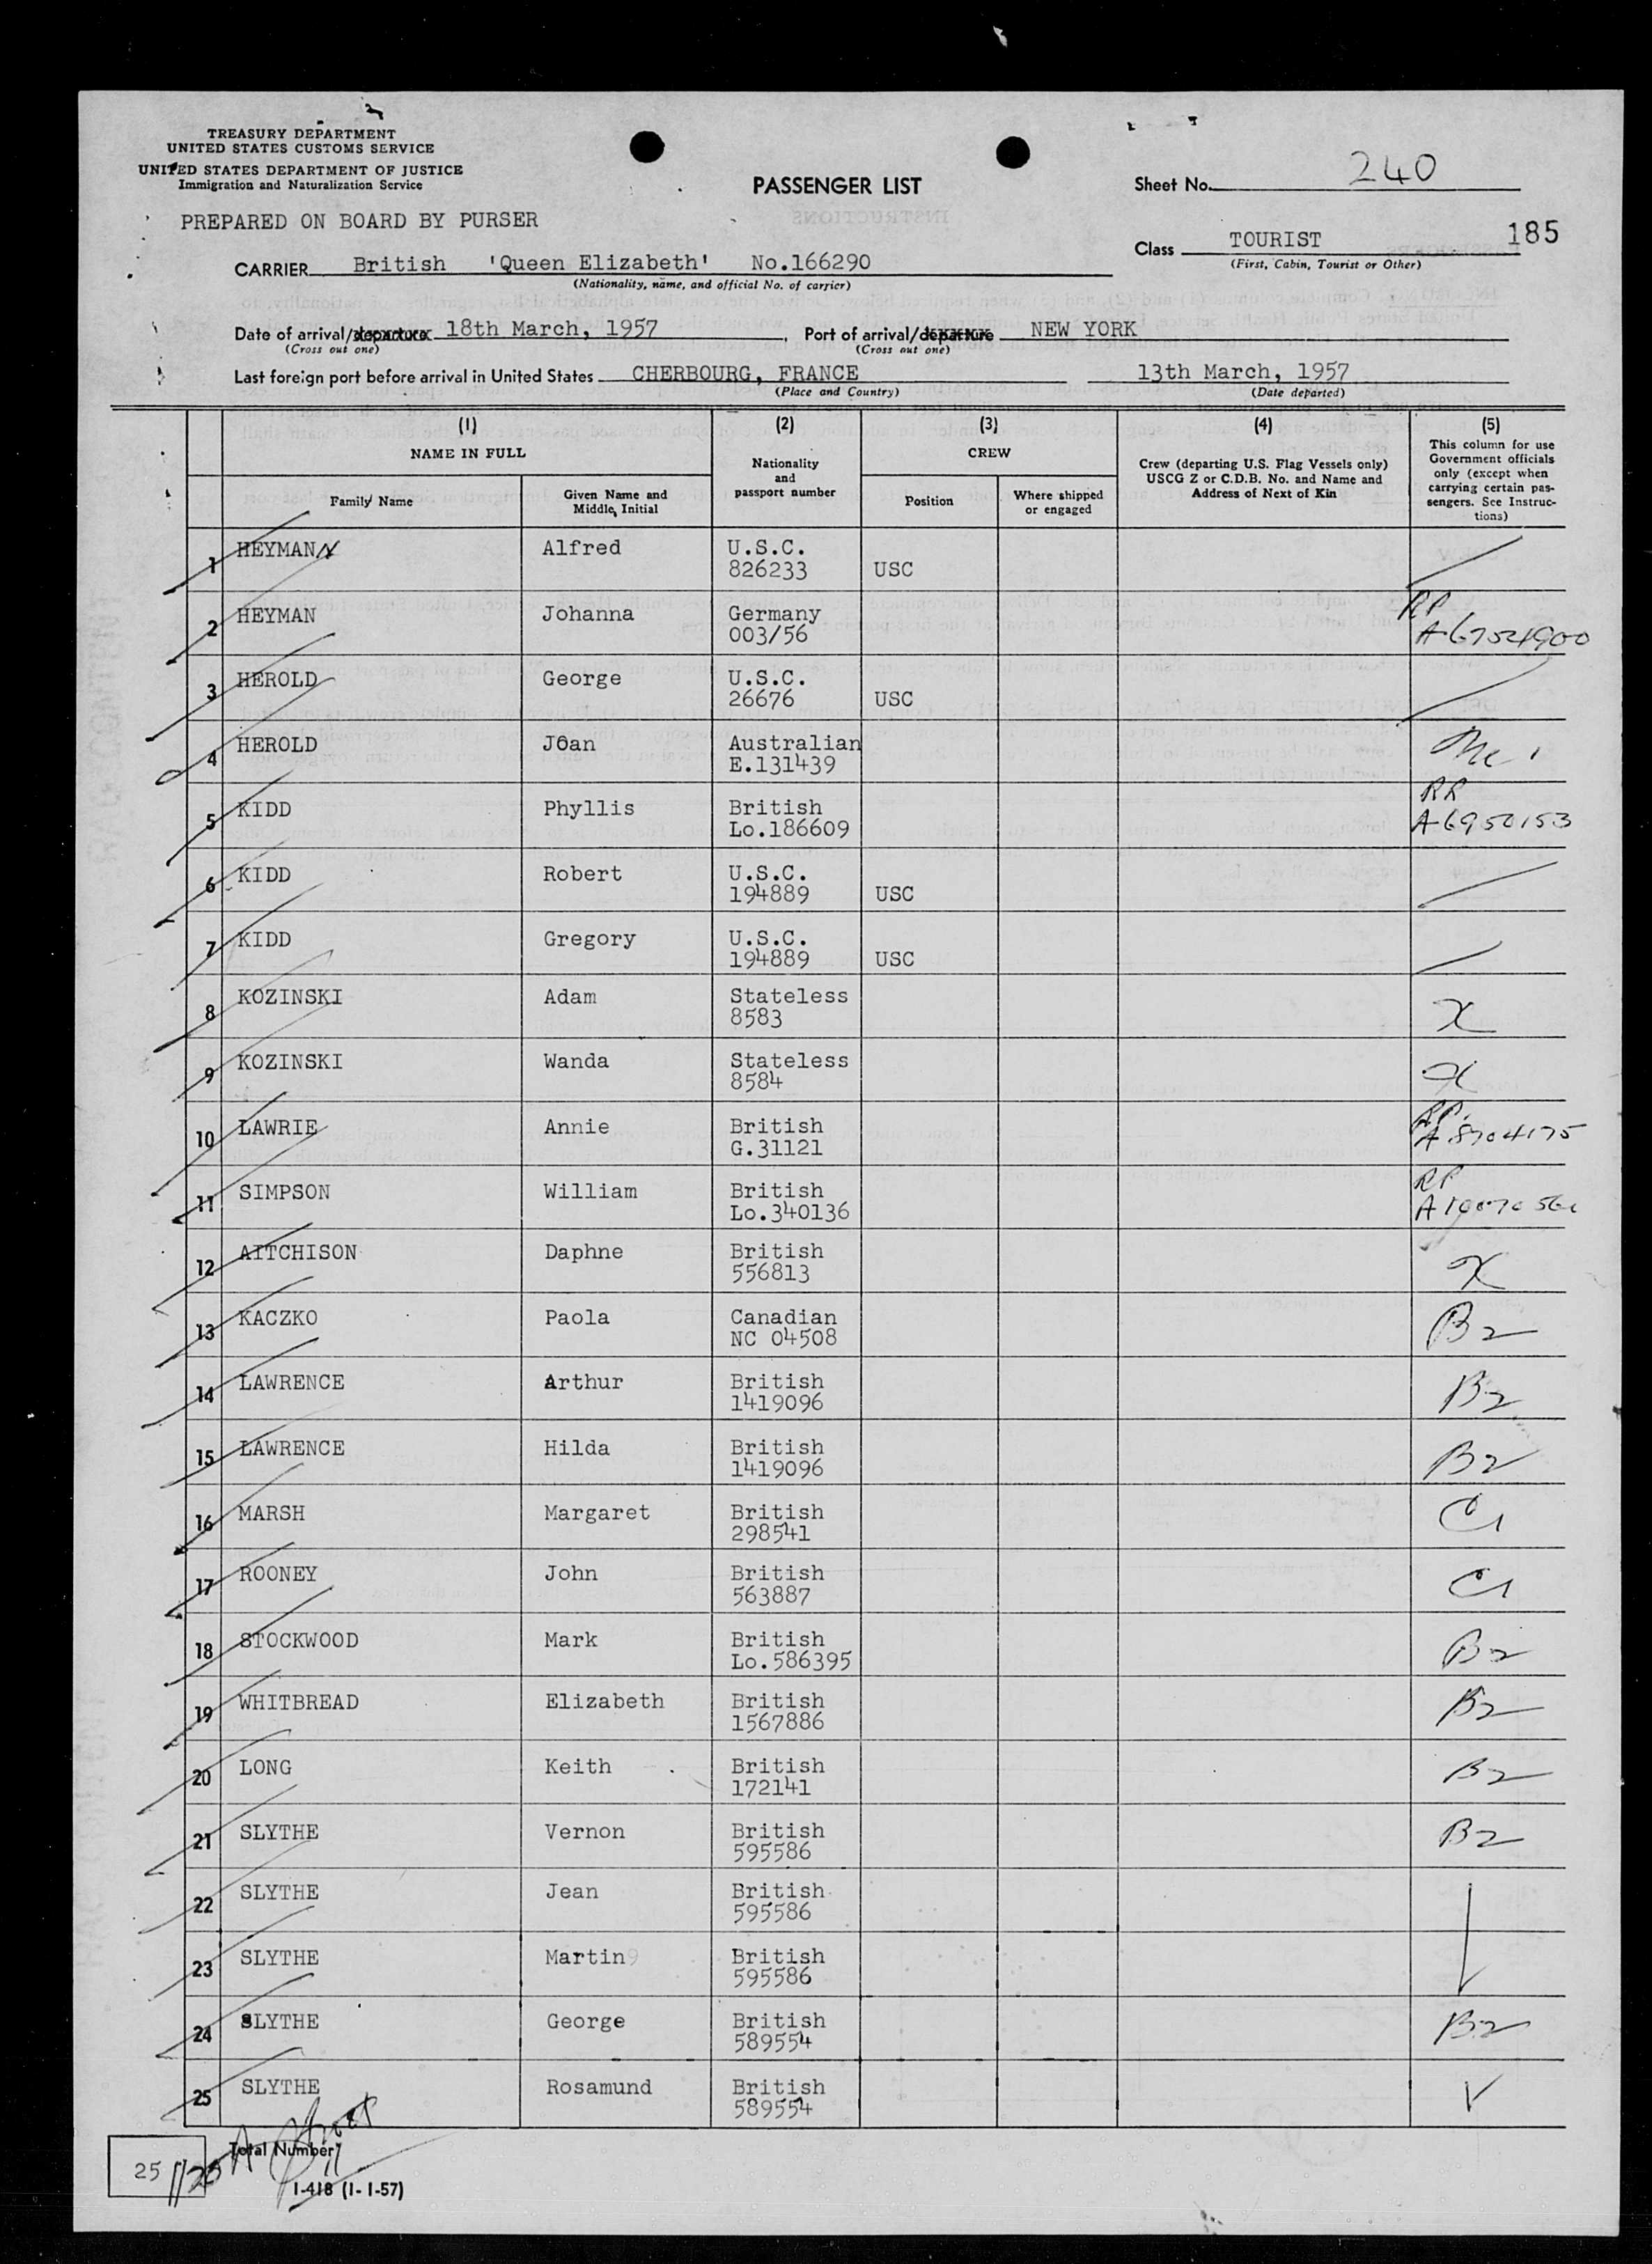 TREASURY DEPARTMENT
UNITED STATES CUSTOMS SERVICE
UNITED STATES DEPARTMENT OF JUSTICE
Immigration and Naturalization Service
PASSENGER LIST
Sheet No. 240
PREPARED ON BOARD BY PURSER
185
Class TOURIST
(First, Cabin, Tourist or Other)
CARRIER British 'Queen Elizabeth' No.166290
(Nationality, name, and official No. of carrier)
Date of arrival/departure 18th March, 1957, Port of arrival/departure NEW YORK
(Cross out one) (Cross out one)
Last foreign port before arrival in United States CHERBOURG, FRANCE 13th March, 1957
(Place and Country) (Date departed)
(1) (2) (3) (4) (5)
NAME IN FULL
Family Name
Given Name and Middle Initial
Nationality and passport number
CREW
Position
Where shipped or engaged
Crew (departing U.S. Flag Vessels only)
USCG Z or C.D.B. No. and Name and
Address of Next of Kin
This column for use
Government officials
only (except when
carrying certain pas-
sengers. See Instruc-
tions)
1 HEYMANN Alfred U.S.C.
826233 USC
2 HEYMAN Johanna Germany
003/56
3 HEROLD George U.S.C.
26676 USC
4 HEROLD Joan Australian
E.131439
5 KIDD Phyllis British
Lo.186609 A6950153
6 KIDD Robert U.S.C.
194889 USC
7 KIDD Gregory U.S.C.
194889 USC
8 KOZINSKI Adam Stateless
8583 X
9 KOZINSKI Wanda Stateless
8584 X
10 LAWRIE Annie British
G.31121 A8704175
11 SIMPSON William British RP
Lo.340136
12 AITCHISON Daphne British
556813 X
13 KACZKO Paola Canadian
NC 04508 B2
14 LAWRENCE Arthur British
1419096 B2
15 LAWRENCE Hilda British
1419096 B2
16 MARSH Margaret British
298541 C1
17 ROONEY John British
563887 C1
18 STOCKWOOD Mark British
Lo.586395 B2
19 WHITBREAD Elizabeth British
1567886 B2
20 LONG Keith British
172141 B2
21 SLYTHE Vernon British
595586 B2
22 SLYTHE Jean British
595586
23 SLYTHE Martin British
595586
24 SLYTHE George British
589554 B2
25 SLYTHE Rosamund British
589554
25 Total Number
I-418 (1-1-57)